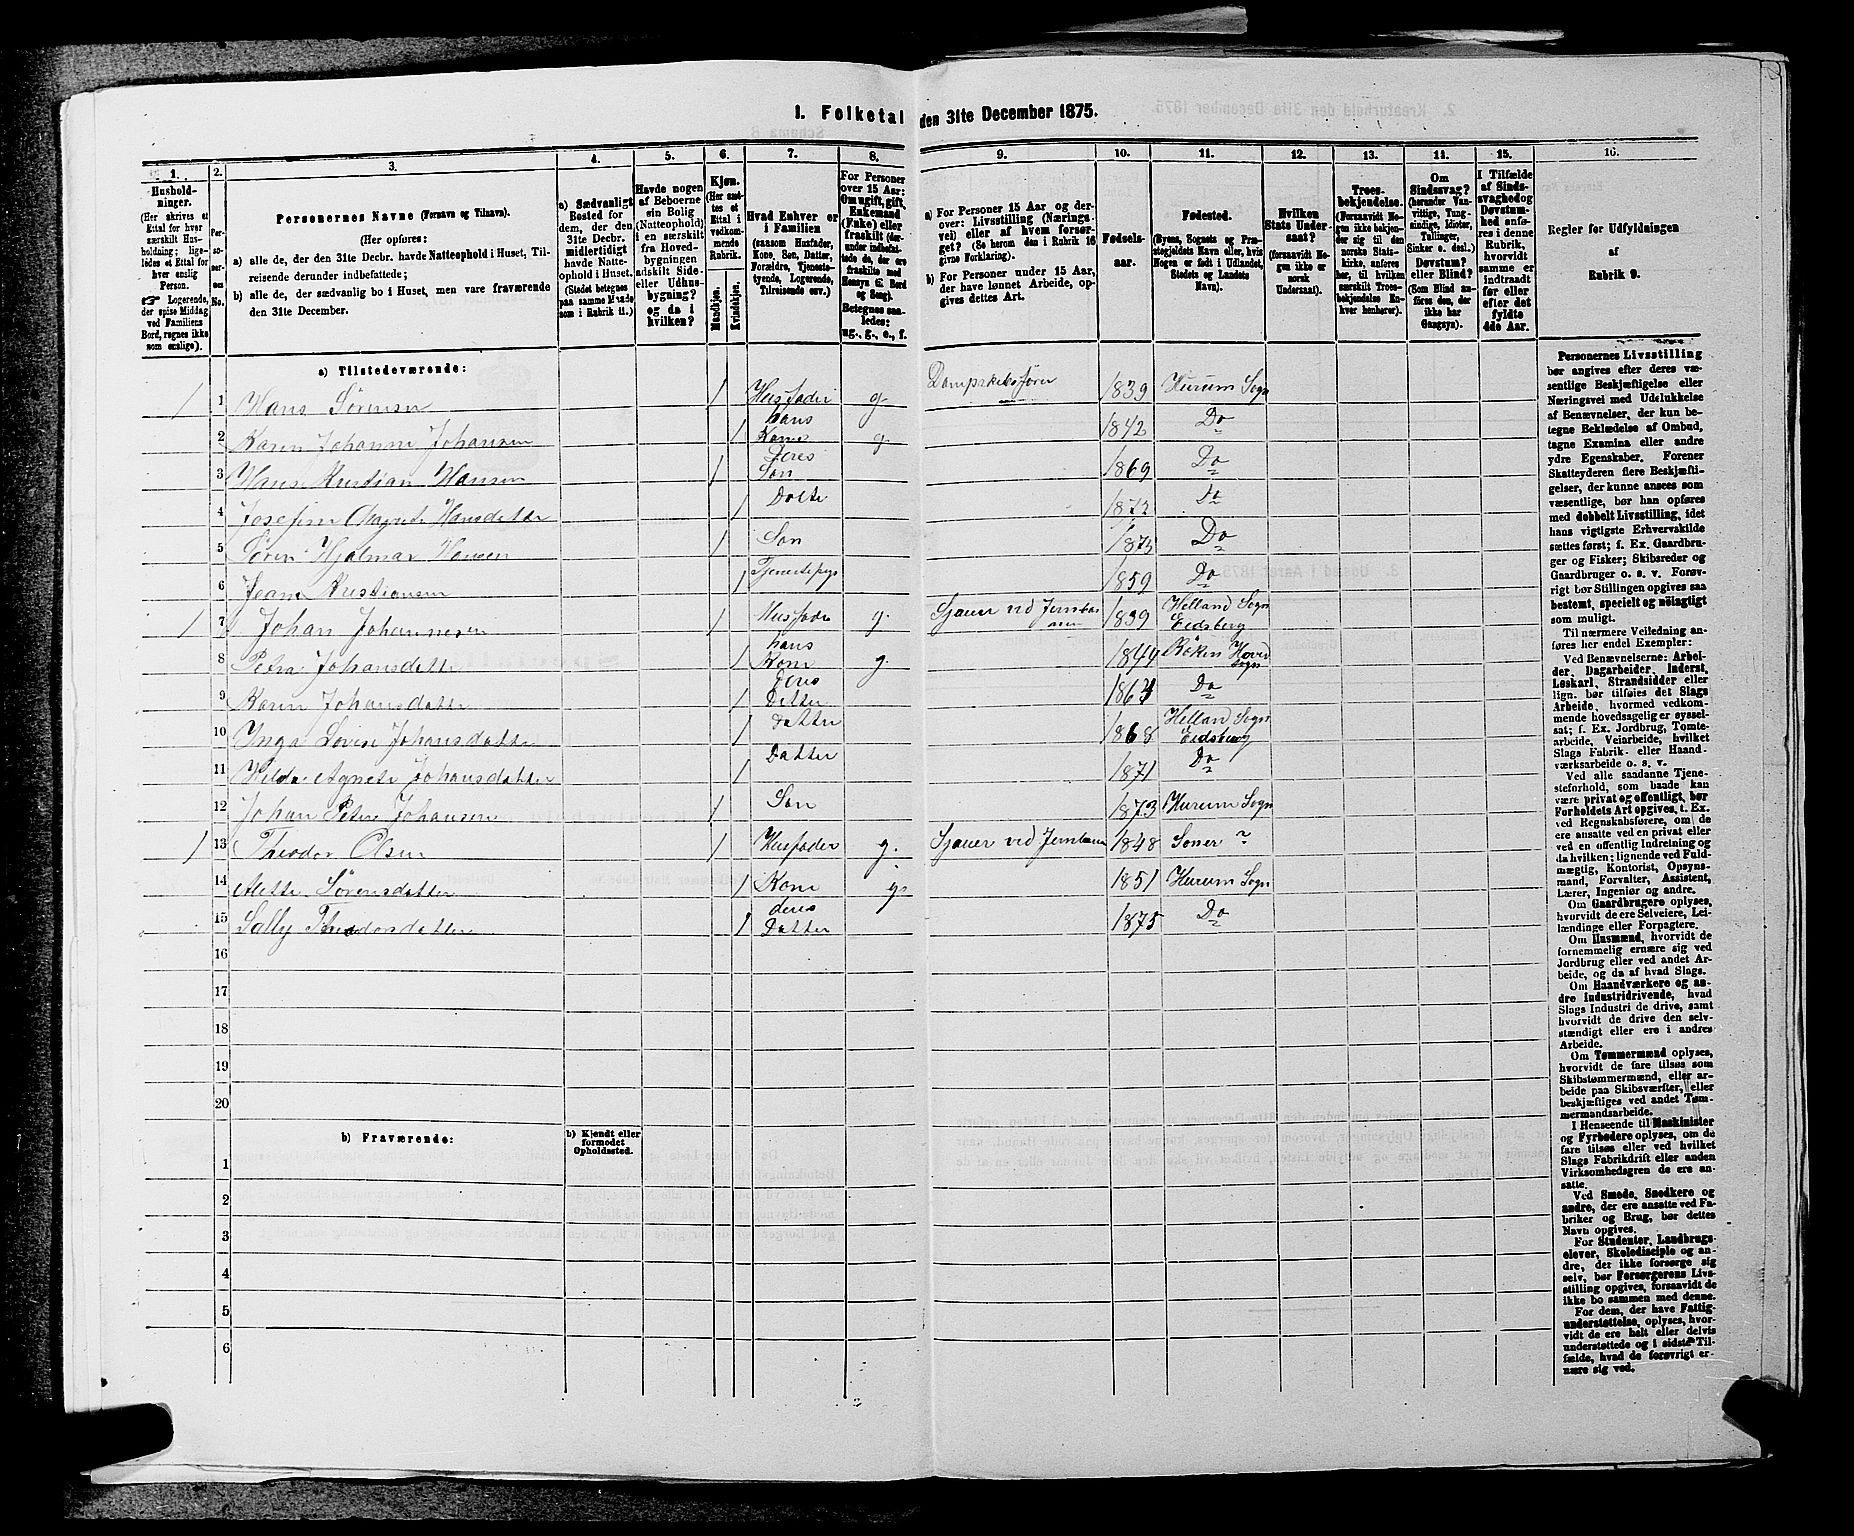 1. Folketal den 31te December 1875.
1. 2. 3. 4. 5. 6. 7. 8. 9. 10. 11. 12. 13. 14. 15. 16.
Hushold-
ninger.
(Her skrives et
Ettal for hver
særskilt Hus-
holdning; lige-
ledes et Ettal for
hver enslig
Person.
☞ Logerende,
der spise Middag
ved Familiens
Bord, regnes ikke
som enslige).
Personernes Navne (Fornavn og Tilnavn).
(Her opføres:
a) alle de, der den 31te Decbr. havde Natteophold i Huset, Til-
reisende derunder indbefattede;
b) alle de, der sædvanlig bo i Huset, men vare fraværende
den 31te December.
a) Sædvanligt
Bosted for
dem, der den
31te Decbr.
midlertidigt
havde Natte-
ophold i Huset.
(Stedet betegnes
paa samme Maade
som i Rubrik 11.)
Havde nogen
af Beboerne
sin Bolig
(Natteophold)
i en særskilt
fra Hoved-
bygningen
adskilt Side-
eller Udhus-
bygning?
og da i
hvilken?
Kjøn.
(Her sæt-
tes et
Ettal i
vedkom-
mende
Rubrik.
Mandkjøn.
Kvindekjøn.
Hvad Enhver er
i Familien
(saasom Husfader,
Kone, Søn, Datter,
Forældre, Tjeneste-
tyende, Logerende,
Tilreisende osv.)
For Personer
over 15 Aar:
Om ugift, gift,
Enkemand
(Enke) eller
fraskilt (der-
under indbefat-
tede de, der ere
fraskilte med
Hensyn til Bord
og Seng).
Betegnes saa-
ledes:
ug., g., e., f.
a) For Personer 15 Aar og der-
over: Livsstilling (Nærings-
vei) eller af hvem forsør-
get? (Se herom den i Rubrik 16
givne Forklaring).
b) For Personer under 15 Aar,
der have lønnet Arbeide, op-
gives dettes Art.
Fødsels-
aar.
Fødested.
(Byens, Sognets og Præ-
stegjeldets Navn eller, hvis
Nogen er født i Udlandet,
Stedets og Landets
Navn).
Hvilken
Stats Under-
saat?
(forsaavidt No-
gen ikke er
norsk
Undersaat).
Troes-
bekjendelse.
(Forsaavidt No-
gen ikke bekjen-
der sig til den
norske Stats-
kirke, anføres
her, til hvilken
særskilt Troes-
bekjendelse En-
hver henhører).
Om
Sindssvag?
(herunder Van-
vittige, Tung-
sindige, Idioter,
Tullinger,
Sinker o. desl.)
Døvstum?
eller Blind?
(Som Blind an-
føres den, der
ikke har
Gangsyn).
I Tilfælde
af Sinds-
svaghed og
Døvstum-
hed anfø-
res i denne
Rubrik,
hvorvidt
samme er
indtraadt
før eller
efter det
fyldte
4de Aar.
Regler for Udfyldningen
af
Rubrik 9.
a) Tilstedeværende:
1 1 Hans Sørensen 1 Husfader g. Dampskibsfører 1839 Hurum Sogn
2 Karen Johanne Johansen 1 hans Kone g. 1842 Do
3 Hans Kristian Hansen 1 deres Søn 1869 Do
4 Josefine Agnete Hansdatter 1 Dotte 1872 Do
5 Søren Hjalmar Hansen 1 Søn 1875 Do
6 Kristiansen 1 Tjenestepige 1859 Do
1 7 Johan Johannesen 1 Husfader g. Sjauer ved 1839 Helland Sogn Eidsberg
8 Petra Johansdatter 1 hans Kone g. 1844 Røken Hoved Sogn
9 Karen Johansdatter 1 deres Datter 1864 Do
10 Inga Lovise Johansdatter 1 Datter 1868 Helland Sogn Eidsberg
11 Hilda Agnete Johansdatter 1 Datter 1871 Do
12 Johan Petter Johansen 1 Søn 1873 Hurum Sogn
1 13 Theodor Olsen 1 Husfader g. Sjauer ved 1848 Soner ?
14 Alette Sørensdatter 1 Kone g. 1851 Hurum Sogn
15 Sally Theodorsdatter 1 deres Datter 1875 Do
16
17
18
19
20
b) Fraværende:
b) Kjendt eller
formodet
Opholdssted.
1
2
3
4
5
6
Personernes Livsstilling
bør angives efter deres væ-
sentlige Beskjæftigelse eller
Næringsvei med Udelukkelse
af Benævnelser, der kun be-
tegne Beklædelse af Ombud,
tagne Examina eller andre
ydre Egenskaber. Forener
Skatteyderen flere Beskjæfti-
gelser, der kunne ansees som
væsentlige, bør han opføres
med dobbelt Livsstilling, idet
hans vigtigste Erhvervskilde
sættes først; f. Ex. Gaardbru-
ger og Fisker; Skibsreder og
Gaardbruger o. s. v. Forøv-
rigt bør Stillingen opgives saa
bestemt, specielt og nøiagtigt
som muligt.
Til nærmere Veiledning an-
føres her endel Exempler:
Ved Benævnelserne: Arbei-
der, Dagarbeider, Inderst,
Løskarl, Strandsidder eller
lign. bør tilføies det Slags
Arbeide, hvormed vedkom-
mende hovedsagelig er syssel-
sat; f. Ex. Jordbrug, Tomte-
arbeide, Veiarbeide, hvilket
Slags Fabrik- eller Haand-
værksarbeide o. s. v.
Ved alle saadanne Tjene-
steforhold, som baade kan
være privat og offentlig, bør
Forholdets Art opgives, t. Ex.
ved Regnskabsførere, om de
ere ansatte ved en privat eller
ved en offentlig Indretning og
da hvilken; lignende ved Fuld-
mægtig, Kontorist, Opsyns-
mand, Forvalter, Assistent,
Lærer, Ingeniør og andre.
Om Gaardbrugere oplyses,
hvorvidt de ere Selveiere, Lei-
lændinge eller Forpagtere.
Om Husmænd, hvorvidt de
fornemmelig ernære sig ved
Jordbrug eller ved andet Ar-
beide, og da af hvad Slags.
Om Haandværkere og an-
dre industridrivende, hvad
Slags Industri de drive, samt
hvorvidt de drive den selv-
stændigt eller ere i andres
Arbeide.
Om Tømmermænd oplyses,
hvorvidt de fare tilsøs som
Skibstømmermænd, eller ar-
beide paa Skibsværfter, eller
beskjæftiges ved andet Tøm-
mermandsarbeide.
I Henseende til Maskinister
og Fyrbødere oplyses, om de
fare tilsøs eller ved hvilket
Slags Fabrikdrift eller anden
Virksomhedsgren de ere an-
satte.
Ved Smede, Snedkere og
andre, der ere ansatte ved Fa-
briker og Brug, bør dettes
Navn opgives.
For Studenter, Landbrugs-
elever, Skoledisciple og an-
dre, der ikke forsørge sig
selv, bør Forsørgerens Livs-
stilling opgives, forsaavidt de
ikke bo sammen med denne.
For dem, der have Fattig-
understøttelse, oplyses, hvor-
vidt de ere helt eller delvis
understøttede og i sidste Til-
fælde, hvad de forøvrigt er-
nære sig ved.